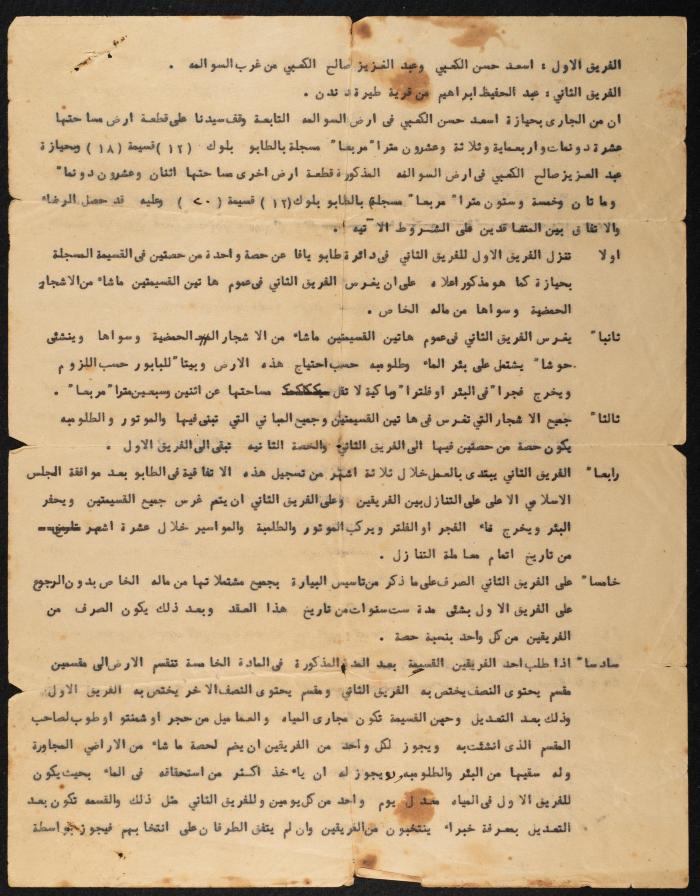 الفريق الاول : اسعد حسن الكعبي وعبد العزيز صالح الكعبي من عرب السوالمه .
الفريق الثاني : عبد الحفيظ ابراهيم من قرية طيرة دندن .
ان من الجارى بحيازة اسعد حسن الكعبي فى ارض السوالمه التابعة وقف سيدنا على قطعة ارض مساحتها
عشرة دونمات واربعماية وثلاثة وعشرون مترا" مربعا" مسجلة بالطابو بلوك (١٢) قسيمة (١٨) وبحيازة
عبد العزيز صالح الكعبي فى ارض السوالمه المذكورة قطعة ارض اخرى مساحتها اثنان وعشرون دونما"
ومأتان وخمسة وستون مترا" مربعا" مسجلة بالطابو بلوك (١٢) قسيمة (٢٠) وعليه قد حصل الرضاء
والاتفاق بين المتعاقدين على الشروط الاتيه .
اولا تنزل الفريق الاول للفريق الثاني فى دائرة طابو يافا عن حصة واحدة من حصتين فى القسيمة المسجلة
بحيازة كما هو مذكور اعلاه على ان يغرس الفريق الثاني فى عموم هاتين القسيمتين ماشاء من الاشجار
الحمضية وسواها من ماله الخاص .
ثانيا" يغرس الفريق الثاني فى عموم هاتين القسيمتين ماشاء من الاشجار الحمضية وسواها وينشئى
حوشا" يشتمل على بئر الماء وطلومبه حسب احتياج هذه الارض وبيتا" للبابور حسب اللزوم
ويخرج فجرا" فى البئر او فلترا" وماكية لا تقل مساحتها عن اثنين وسبعين مترا" مربعا" .
ثالثا" جميع الاشجار التي تغرس فى هاتين القسيمتين وجميع المباني التي تبنى فيها والموتور والطلومبه
يكون حصة من حصتين فيها الى الفريق الثاني والحصة الثانيه تبقى الى الفريق الاول .
رابعا" الفريق الثاني يبتدى بالعمل خلال ثلاثة اشهر من تسجيل هذه الاتفاقية فى الطابو بعد موافقة المجلس
الاسلامي الاعلى على التنازل بين الفريقين وعلى الفريق الثاني ان يتم غرس جميع القسيمتين ويحفر
البئر ويخرج ماء الفجر او الفلتر ويركب الموتور والطلمبة والمواسير خلال عشرة اشهر
من تاريخ اتمام معاملة التنازل .
خامسا" على الفريق الثاني الصرف على ما ذكر من تاسيس البيارة بجميع مشتملاتها من ماله الخاص بدون الرجوع
على الفريق الاول بشئى مدة ست سنوات من تاريخ هذا العقد وبعد ذلك يكون الصرف من
الفريقين من كل واحد بنسبة حصة .
سادسا" اذا طلب احد الفريقين القسيمة بعد المدة المذكورة فى المادة الخامسة تنقسم الارض الى مقسمين
مقسم يحتوى النصف يختص به الفريق الثاني ومقسم يحتوى النصف الاخر يختص به الفريق الاول
وذلك بعد التعديل وحين القسيمة تكون مجارى المياه والعماميل من حجر او شمنتو او طوب لصاحب
المقسم الذى انشئت به ويجوز لكل واحد من الفريقين ان يضم لحصة ماشاء من الاراضي المجاورة
وله سقيها من البئر والطلومبه ويجوز له ان ياءخذ اكثر من استحقاقه فى الماء بحيث يكون
للفريق الاول فى المياه معدل يوم واحد من كل يومين وللفريق الثاني مثل ذلك والقسمه تكون بعد
التعديل بمعرفة خبراء ينتخبون من الفريقين وان لم يتفق الطرفان على انتخابهم فيجوز بواسطة